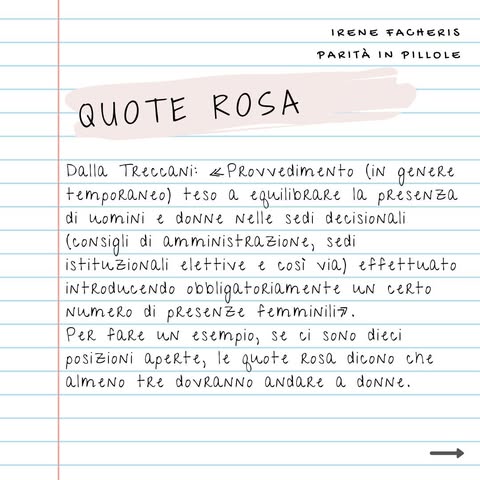 IRENE FACHERIS
PARITÀ IN PILLOLE
QUOTE ROSA
Dalla Treccani: «Provvedimento (in genere
temporaneo) teso a equilibrare la presenza
di uomini e donne nelle sedi decisionali
(consigli di amministrazione, sedi
istituzionali elettive e così via) effettuato
introducendo obbligatoriamente un certo
numero di presenze femminili».
Per fare un esempio, se ci sono dieci
posizioni aperte, le quote rosa dicono che
almeno tre dovranno andare a donne.